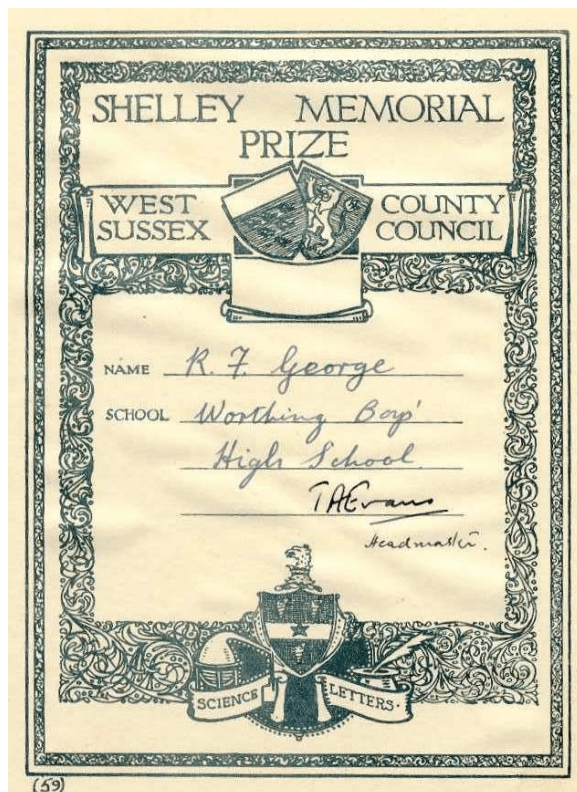 SHELLEY MEMORIAL
PRIZE
WEST SUSSEX
COUNTY COUNCIL
NAME R. F. George
SCHOOL Worthing Boys'
High School
TAEvans
Headmaster.
SCIENCE LETTERS.
(59)